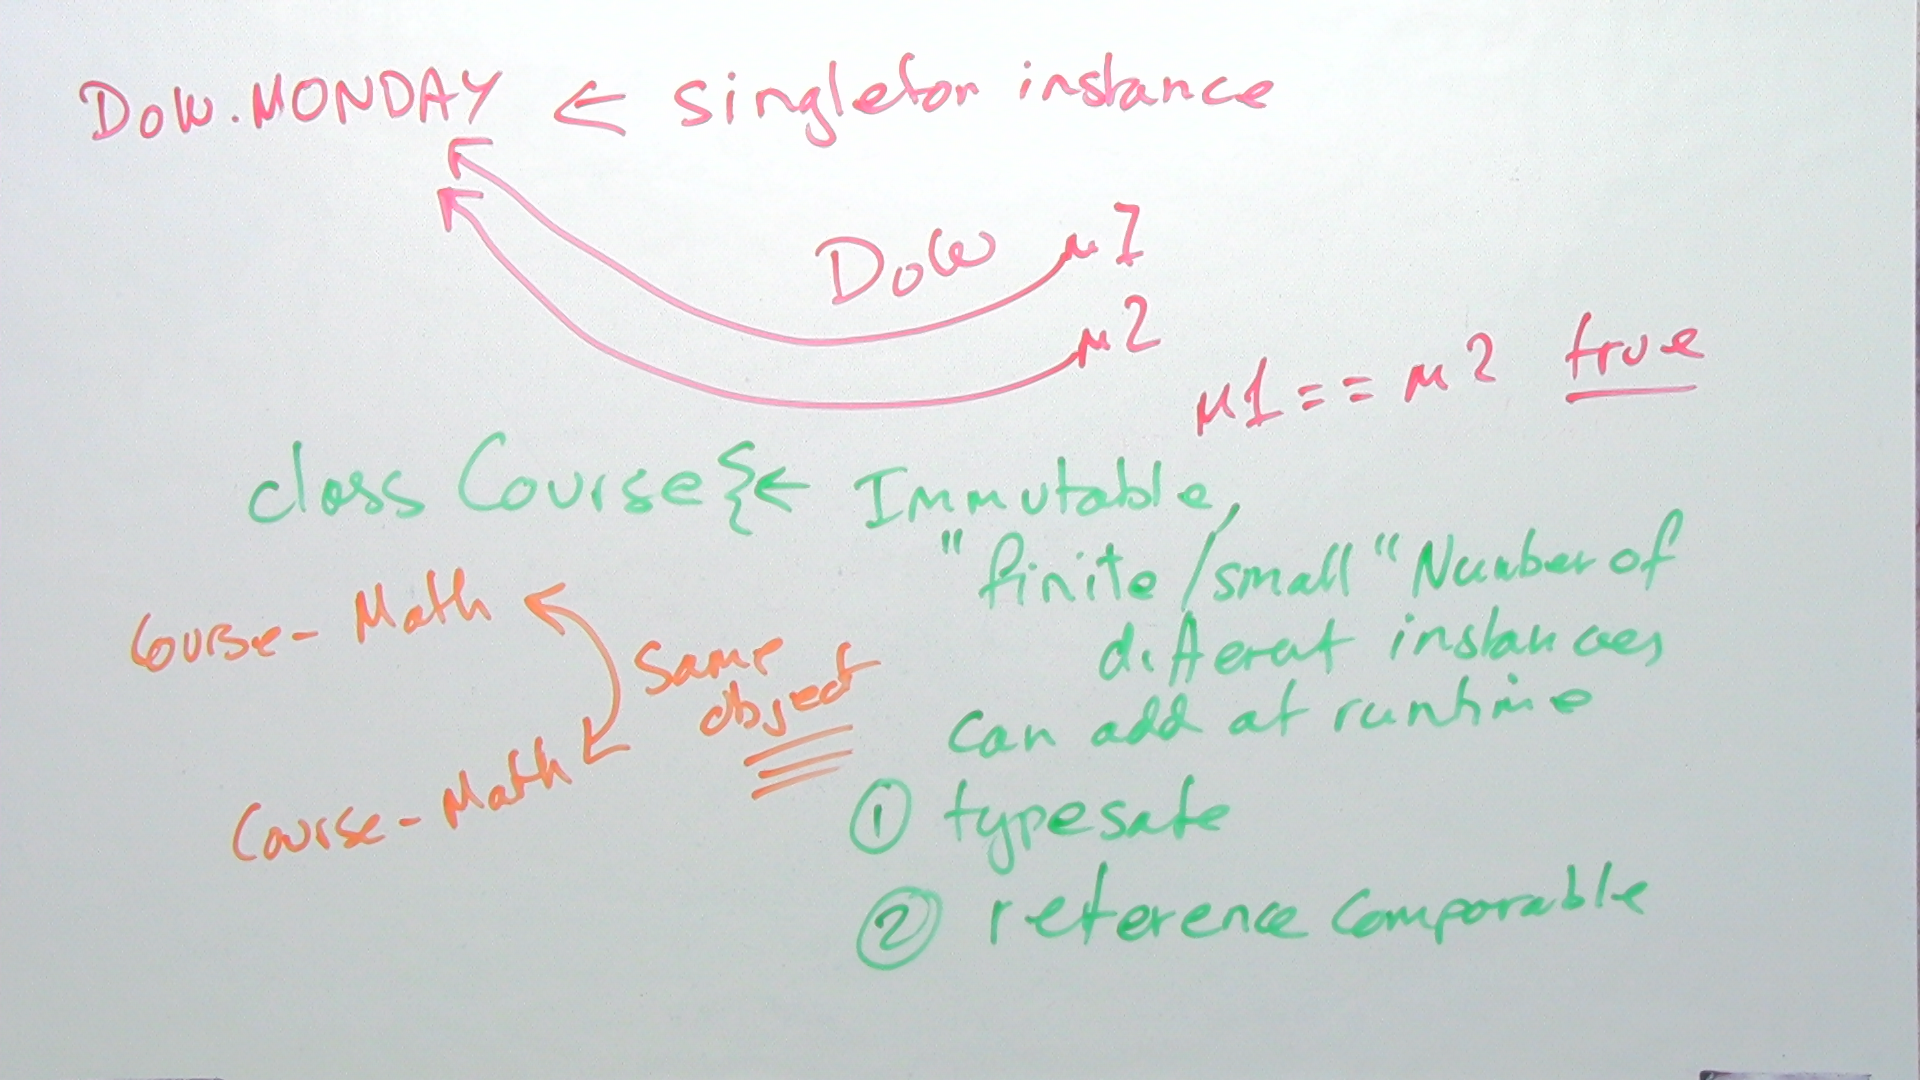 DoW.MONDAY ← singleton instance
DoW m1
m2
m1 == m2 true
class Course { ← Immutable,
"finite/small" Number of
different instances
can add at runtime
① typesafe
② reference comparable
Course - Math
Same
object
Course - Math